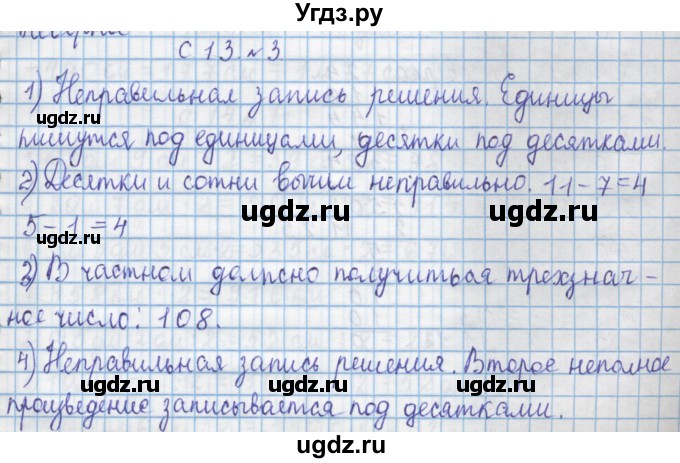 Угдз.ру
С 13. №3.
1) Неправильная запись решения. Единицы
пишутся под единицами, десятки под десятками.
ugdz.ru ugdz.ru
2) Десятки и сотни вычли неправильно. 11-7=4
ugdz.ru
5-1=4
ugdz.ru
3) В частном должно получиться трехзнач-
ное число: 108.
ugdz.ru ugdz.ru
4) Неправильная запись решения. Второе неполное
ugdz.ru
произведение записывается под десятками.
ugdz.ru
ugdz.ru